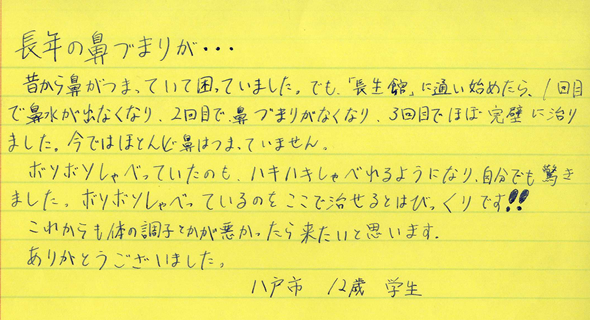 長年の鼻づまりが・・・
昔から鼻がつまっていて困っていました。でも、「長生館」に通い始めたら、1回目
で鼻水が出なくなり、2回目で鼻づまりがなくなり、3回目でほぼ完璧に治り
ました。今ではほとんど鼻はつまっていません。
ボソボソしゃべっていたのも、ハキハキしゃべれるようになり、自分でも驚き
ました。ボソボソしゃべっているのをここで治せるとはびっくりです!!
これからも体の調子とかが悪かったら来たいと思います。
ありがとうございました。
八戸市 12歳 学生